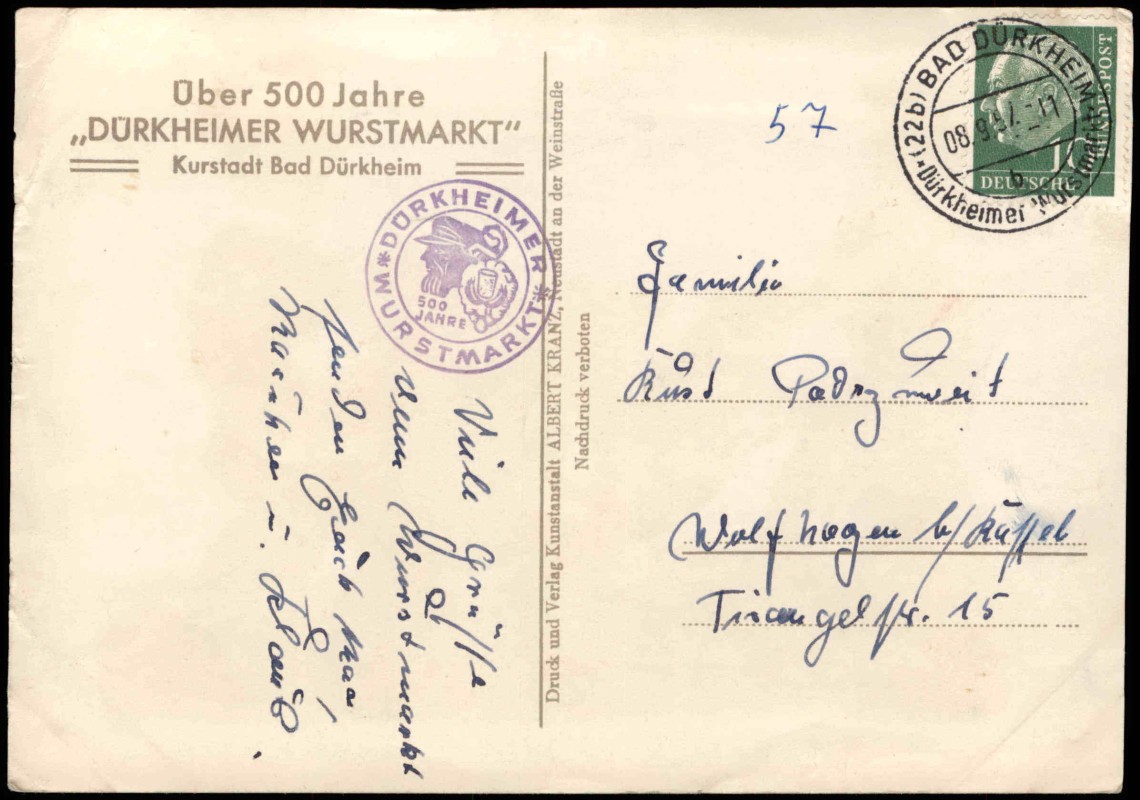 Über 500 Jahre
„DÜRKHEIMER WURSTMARKT“
Kurstadt Bad Dürkheim
* DÜRKHEIMER *
WURSTMARKT
500
JAHRE
Viele Grüsse
vom Wurstmarkt
senden Euch
u. Klaus
Druck und Verlag Kunstanstalt ALBERT KRANZ, Neustadt an der Weinstraße
Nachdruck verboten
57
(22b) BAD DÜRKHEIM
08.9.57.-11
b
*Dürkheimer Wurstmarkt*
BUNDESPOST
10
DEUTSCHE
Familie
Kurt
Wolfhagen b/Kassel
Triangelstr. 15